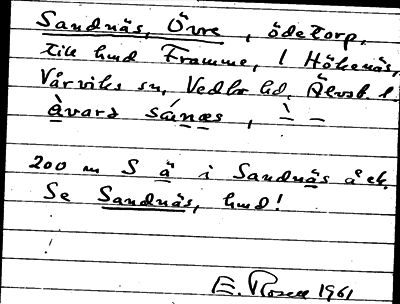 Sandnäs, Övre, ödetorp,
till hmd Framme, i Hökenäs,
Vårviks sn, Vedbo hd, Älvsb. l.
àvarə sánæs, ˋ – –
200 m S ä i Sandnäs å ek.
Se Sandnäs, hmd!
E. Rosell 1961